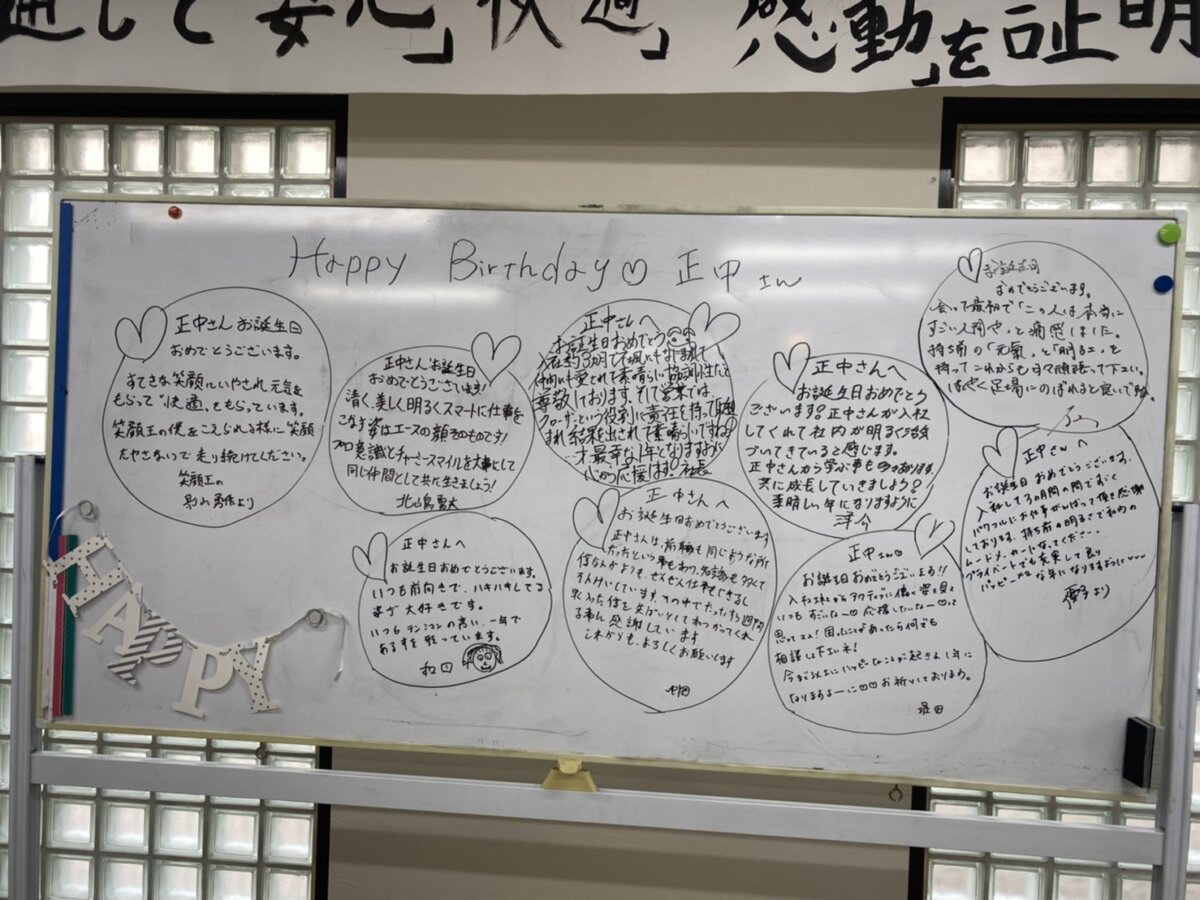 通して安心」「快適」「感動」を証明
Happy Birthday♡ 正中さん
正中さんお誕生日
おめでとうございます。
すてきな笑顔にいやされ元気を
もらって"快適"をもらっています。
笑顔王の僕をこえられる様に笑顔
たやさないで走り続けてください。
笑顔王の
より
正中さんお誕生日
おめでとうございます!
清く、美しく、明るくスマートに仕事を
こなす姿はエースの顔そのものです!
プロ意識とチャーミースマイルを大事にして
同じ仲間として共に生きましょう!
北山
正中さんへ
お誕生日おめでとう
入社約3か月で不風となしまれて
仲間に愛されて素晴らしい協調性だと
尊敬しております。そして営業では
クローザーという役割に責任を持って取組
まれ結果を出されて素晴らしいですね!
最幸な1年となりますよう
心から応援はす! 社長
正中さんへ
お誕生日おめでとう
ございます!正中さんが入社
してくれて社内が明るく活気
づいてきていると感じます。
正中さんから学ぶ事も多々あります。
共に成長していきましょう!
素晴しい年になりますように
洋介
お誕生日
おめでとうございます。
会って最初で「この人は本当に
すごい人間や」と痛感しました。
持ち前の「元氣」と「明るさ」を
持ってこれからも日々頑張って下さい。
はやく足場にのぼれると良いですね。
正中さんへ
お誕生日おめでとうございます。
いつも前向きで、ハキハキしてる
姿が大好きです。
いつもテンションの高い、一年で
あるすを祈っています。
和田
正中さんへ
お誕生日おめでとうございます
正中さんは、前職も同じような所
だったという事もあり、知識も多くて
何なんかよりも、ぜんぜん仕事できるし
すんけいしています。その中でたった1週間
早く入った僕を先ぱいとしてあつかってくれ
る事に感謝しています
これからも、よろしくお願いします
中田
正中さん♡
お誕生日おめでとうございます!!
入社されからアクティブに働く姿を見て
いつもすごいなー♡応援したいなー♡って
思ってます!困ったことがあったら何でも
相談して下さいネ!
今まで以上にハッピーなことが起きる1年に
なりますよーに♡♡お祈りしております。
堀田
正中さんへ
お誕生日おめでとうございます。
入社して3ヶ月間の間ですごく
パワフルにお仕事がんばって頂き感謝
しております。持ち前の明るさで社内の
ムードメーカーになってください。
プライベートでも充実して良り
ハッピーな年になりますように
より
HAPPY